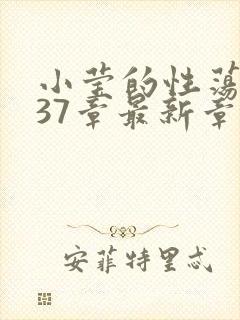 小莹的性荡
37章最新章
安菲特里忒